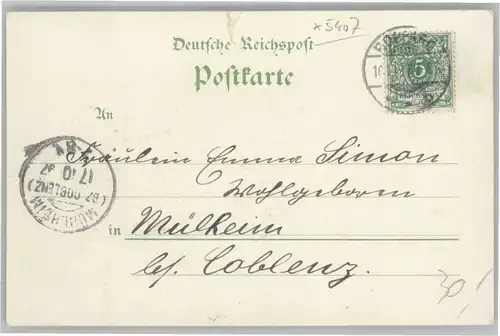 x5407
Deutsche Reichspost
Postkarte
5
An
Fräulein Emma Simon
Wohlgeboren
in Mülheim
bei Coblenz.
MÜHLHEIM
(BZ. COBLENZ)
17 10 97
30!